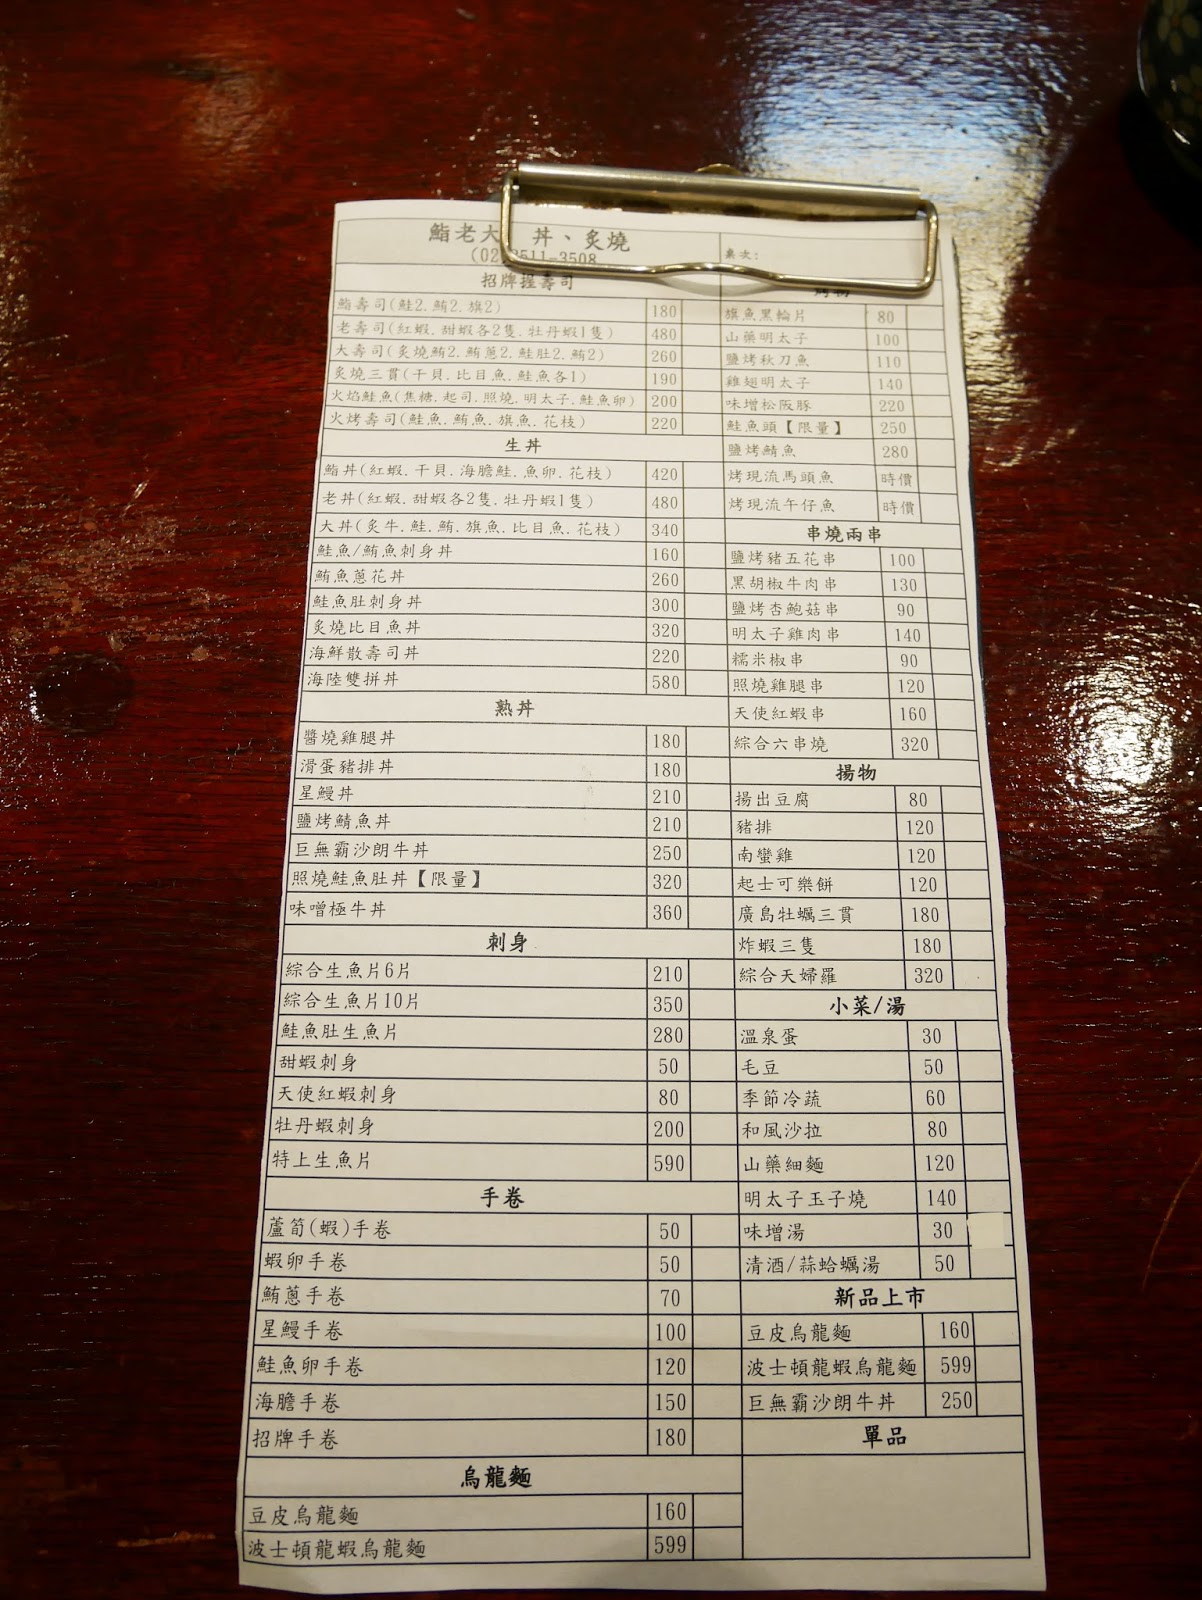 鮨老大 丼、炙燒
(02)2511-3508
桌次:
招牌握壽司
鮨壽司(鮭2.鮪2.旗2) 180
老壽司(紅蝦.甜蝦各2隻.牡丹蝦1隻) 480
大壽司(炙燒鮪2.鮪蔥2.鮭肚2.鮪2) 260
炙燒三貫(干貝.比目魚.鮭魚各1) 190
火焰鮭魚(焦糖.起司.照燒.明太子.鮭魚卵) 200
火烤壽司(鮭魚.鮪魚.旗魚.花枝) 220
生丼
鮨丼(紅蝦.干貝.海膽鮭.魚卵.花枝) 420
老丼(紅蝦.甜蝦各2隻.牡丹蝦1隻) 480
大丼(炙牛.鮭.鮪.旗魚.比目魚.花枝) 340
鮭魚/鮪魚刺身丼 160
鮪魚蔥花丼 260
鮭魚肚刺身丼 300
炙燒比目魚丼 320
海鮮散壽司丼 220
海陸雙拼丼 580
熟丼
醬燒雞腿丼 180
滑蛋豬排丼 180
星鰻丼 210
鹽烤鯖魚丼 210
巨無霸沙朗牛丼 250
照燒鮭魚肚丼【限量】 320
味噌極牛丼 360
刺身
綜合生魚片6片 210
綜合生魚片10片 350
鮭魚肚生魚片 280
甜蝦刺身 50
天使紅蝦刺身 80
牡丹蝦刺身 200
特上生魚片 590
手卷
蘆筍(蝦)手卷 50
蝦卵手卷 50
鮪蔥手卷 70
星鰻手卷 100
鮭魚卵手卷 120
海膽手卷 150
招牌手卷 180
烏龍麵
豆皮烏龍麵 160
波士頓龍蝦烏龍麵 599
烤物
旗魚黑輪片 80
山藥明太子 100
鹽烤秋刀魚 110
雞翅明太子 140
味增松阪豚 220
鮭魚頭【限量】 250
鹽烤鯖魚 280
烤現流馬頭魚 時價
烤現流午仔魚 時價
串燒兩串
鹽烤豬五花串 100
黑胡椒牛肉串 130
鹽烤杏鮑菇串 90
明太子雞肉串 140
糯米椒串 90
照燒雞腿串 120
天使紅蝦串 160
綜合六串燒 320
揚物
揚出豆腐 80
豬排 120
南蠻雞 120
起士可樂餅 120
廣島牡蠣三貫 180
炸蝦三隻 180
綜合天婦羅 320
小菜/湯
溫泉蛋 30
毛豆 50
季節冷蔬 60
和風沙拉 80
山藥細麵 120
明太子玉子燒 140
味增湯 30
清酒/蒜蛤蠣湯 50
新品上市
豆皮烏龍麵 160
波士頓龍蝦烏龍麵 599
巨無霸沙朗牛丼 250
單品